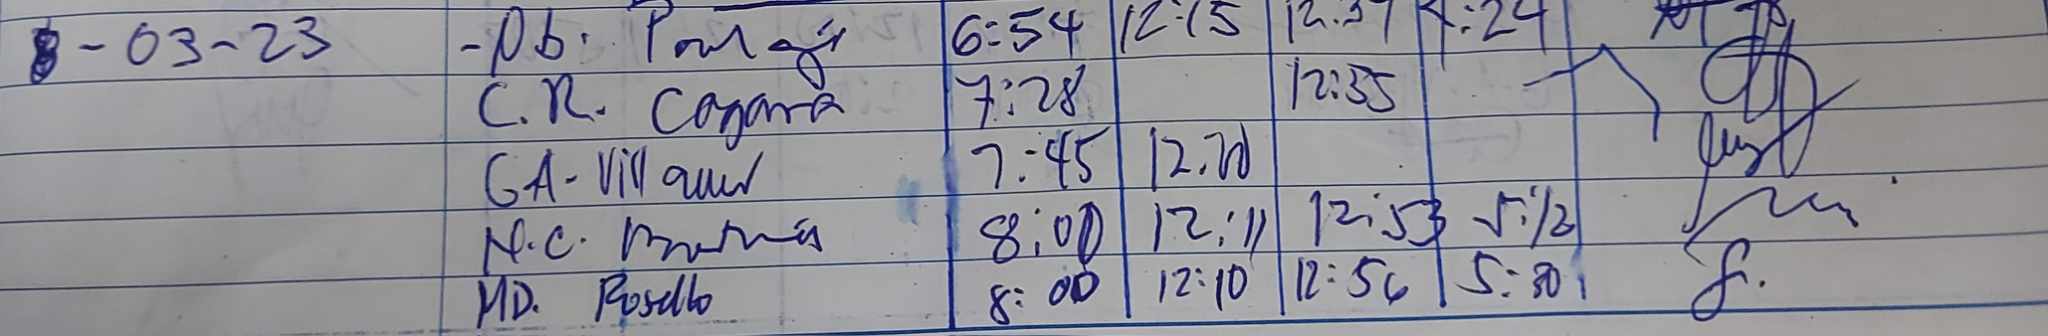 8-03-23 - 6:54 12:15 12:37 4:24
C.R. Cagara 7:28 12:35
GA-Villaver 7:45 12:20
N.C. 8:00 12:11 12:53 5:12
MD. Rosello 8:00 12:10 12:56 5:30